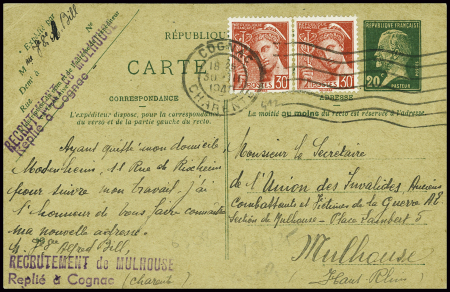 RÉPUBLIQUE
EXPÉDITEUR
M Bill
RECRUTEMENT de MULHOUSE
Replié à Cognac
CARTE
COGNAC
18
CHARENTE
POSTES 30
POSTES 30
POSTES
RÉPUBLIQUE FRANÇAISE
20
PASTEUR
CORRESPONDANCE
ADRESSE
L'expéditeur dispose, pour la correspondance,
du verso et de la partie gauche du recto.
La moitié au moins du recto est réservée à l'adresse.
Ayant quitté mon domicile à
Modenheim, 11 Rue de Rixheim
pour suivre mon travail, j'ai
l'honneur de vous faire connaître
ma nouvelle adresse.
Alfred Bill,
RECRUTEMENT de MULHOUSE
Replié à Cognac (Charente)
Monsieur le Secrétaire
de l'Union des Invalides, Anciens
Combattants et Victimes de la Guerre AE
Section de Mulhouse - Place Lambert 5
Mulhouse
(Haut Rhin)